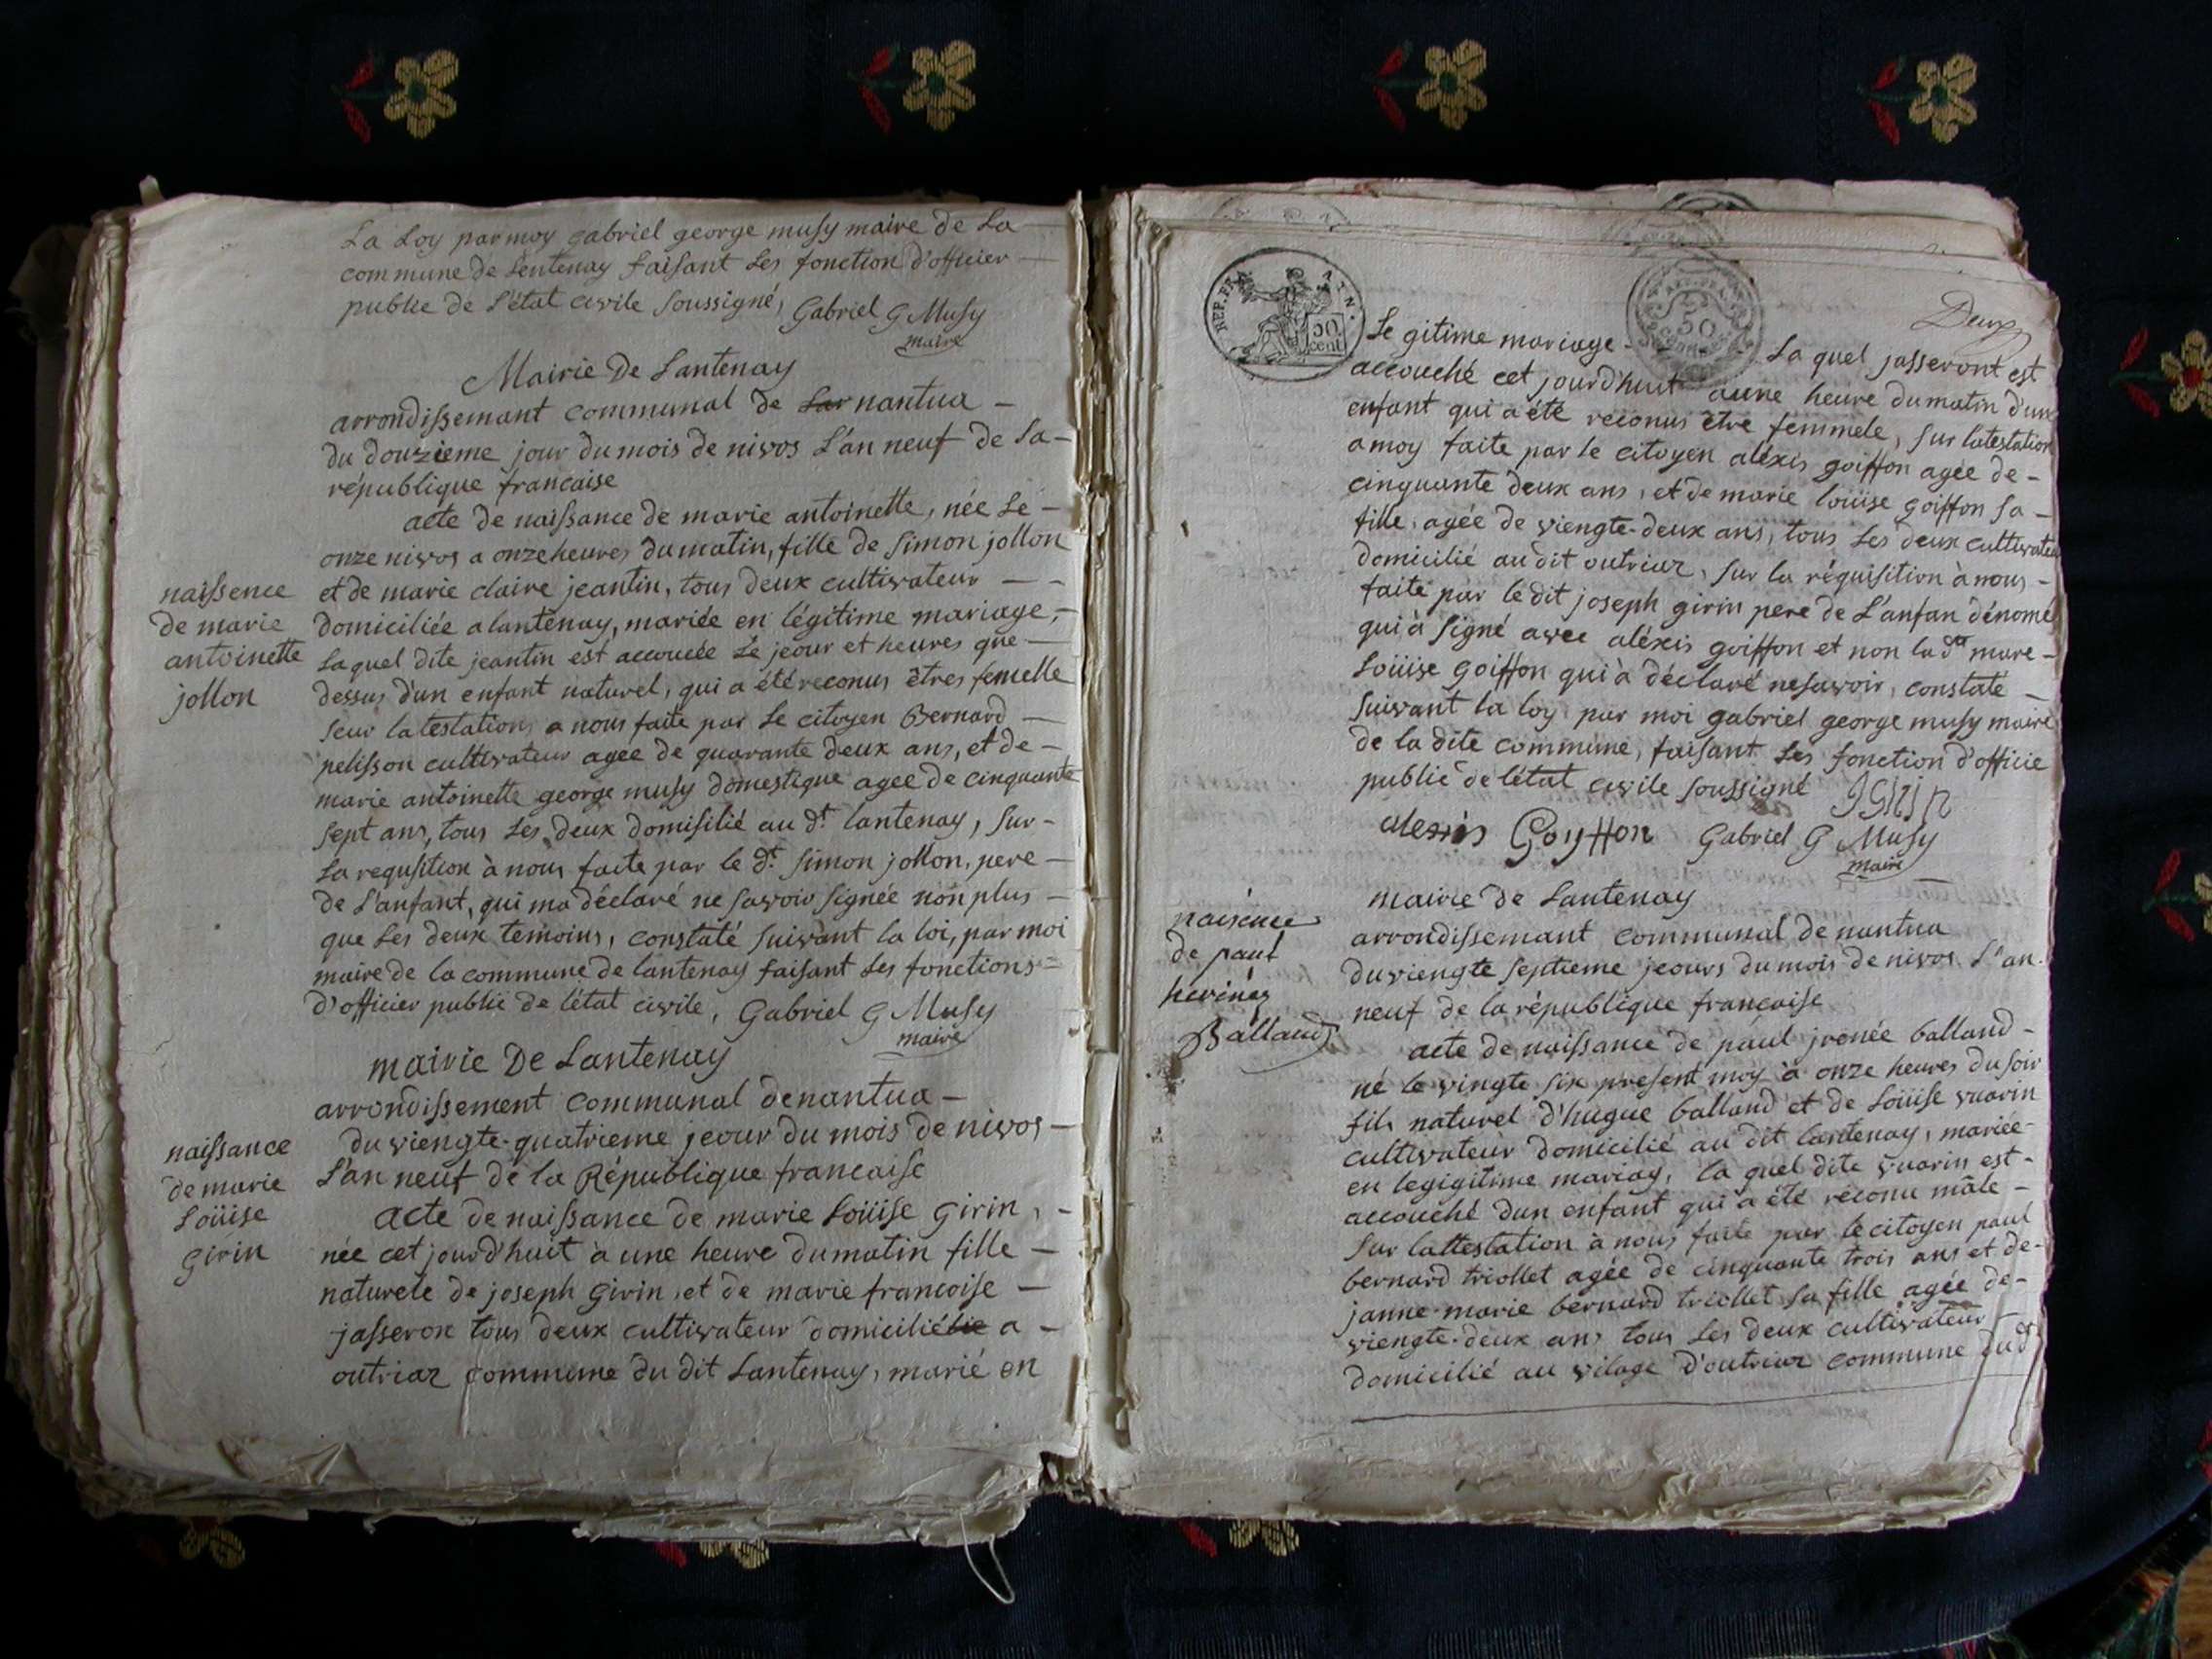 La Loy par moy gabriel george musy maire de La
commune de Lentenay faisant Les fonction d'officier
public de L'état civile soussigné, Gabriel G Musy
maire
Mairie De Lantenay
arrondissemant communal de Lar nantua
du douzieme jour du mois de nivos L'an neuf de La
république francaise
acte de naissance de marie antoinette, née Le
onze nivos a onze heures du matin, fille de Simon jollon
naissence
de marie
antoinette
jollon
et de marie claire jeantin, tous deux cultivateur
domiciliée a lantenay, mariée en légitime mariage,
Laquel dite jeantin est accouée Le jeour et heures que
dessus d'un enfant naturel, qui a été reconus êtres femelle
seur latestation a nous faite par Le citoyen Bernard
pelisson cultivateur agee de quarante deux ans, et de
marie antoinette george musy domestique agee de cinquante
sept ans, tous Les deux domisilié au dt lantenay, sur
La requsition à nous faite par le dt Simon jollon, pere
de L'anfant, qui ma déclaré ne savoir signée non plus
que Les deux temoins, constaté suivant la loi, par moi
maire de la commune de lantenay faisant Les fonctions
d'officier public de l'état civile, Gabriel G Musy
maire
mairie De Lantenay
arrondissement communal de nantua
du viengte-quatrieme jeour du mois de nivos
L'an neuf de la République francaise
naissance
de marie
Loüise
girin
acte de naissance de marie Loüise Girin,
née cet jourd'huit à une heure du matin fille
naturele de joseph Girin, et de marie francoise
jasseron tous deux cultivateur domicilié a
outriaz commune du dit Lantenay, marié en
REP. FRA
50
cent
50
Deux
Le gitime mariage
La quel jasseront est
accouché cet jourd'huit aune heure du matin d'un
enfant qui a été reconus être femmele, sur latestation
a moy faite par le citoyen aléxis goiffon agée de
cinquante deux ans, et de marie loüise goiffon sa
fille, agée de viengte-deux ans, tous Les deux cultivateu
domicilié au dit outriaz, sur la réquisition à nous
faite par le dit joseph girin pere de L'anfan dénomé
qui à signé avec aléxis goiffon et non la dte mare
Loüise goiffon qui à déclaré ne savoir, constaté
suivant la loy par moi gabriel george musy maire
de la dite commune, faisant Les fonction d'officie
public de l'état civile soussigné
alexis Goyffon Gabriel G Musy
maire
mairie de Lantenay
arrondissemant communal de nantua
du viengte septieme jeours du mois de nivos L'an
neuf de la république francaise
naisence
de paul
Balland
acte de naissance de paul jrenée balland
né le vingte six present moy à onze heures du soir
fils naturel d'hugue balland et de Loüise vuarin
cultivateur domicilié au dit lantenay, mariée
en legigitime mariag, la quel dite vuarin est
accouché dun enfant qui a été reconu mâle
sur lattestation à nous faite par le citoyen paul
bernard triollet agée de cinquante trois ans et de
janne-marie bernard triollet sa fille agée de
viengte-deux ans tous Les deux cultivateur
domicilié au vilage d'outriaz commune dudt